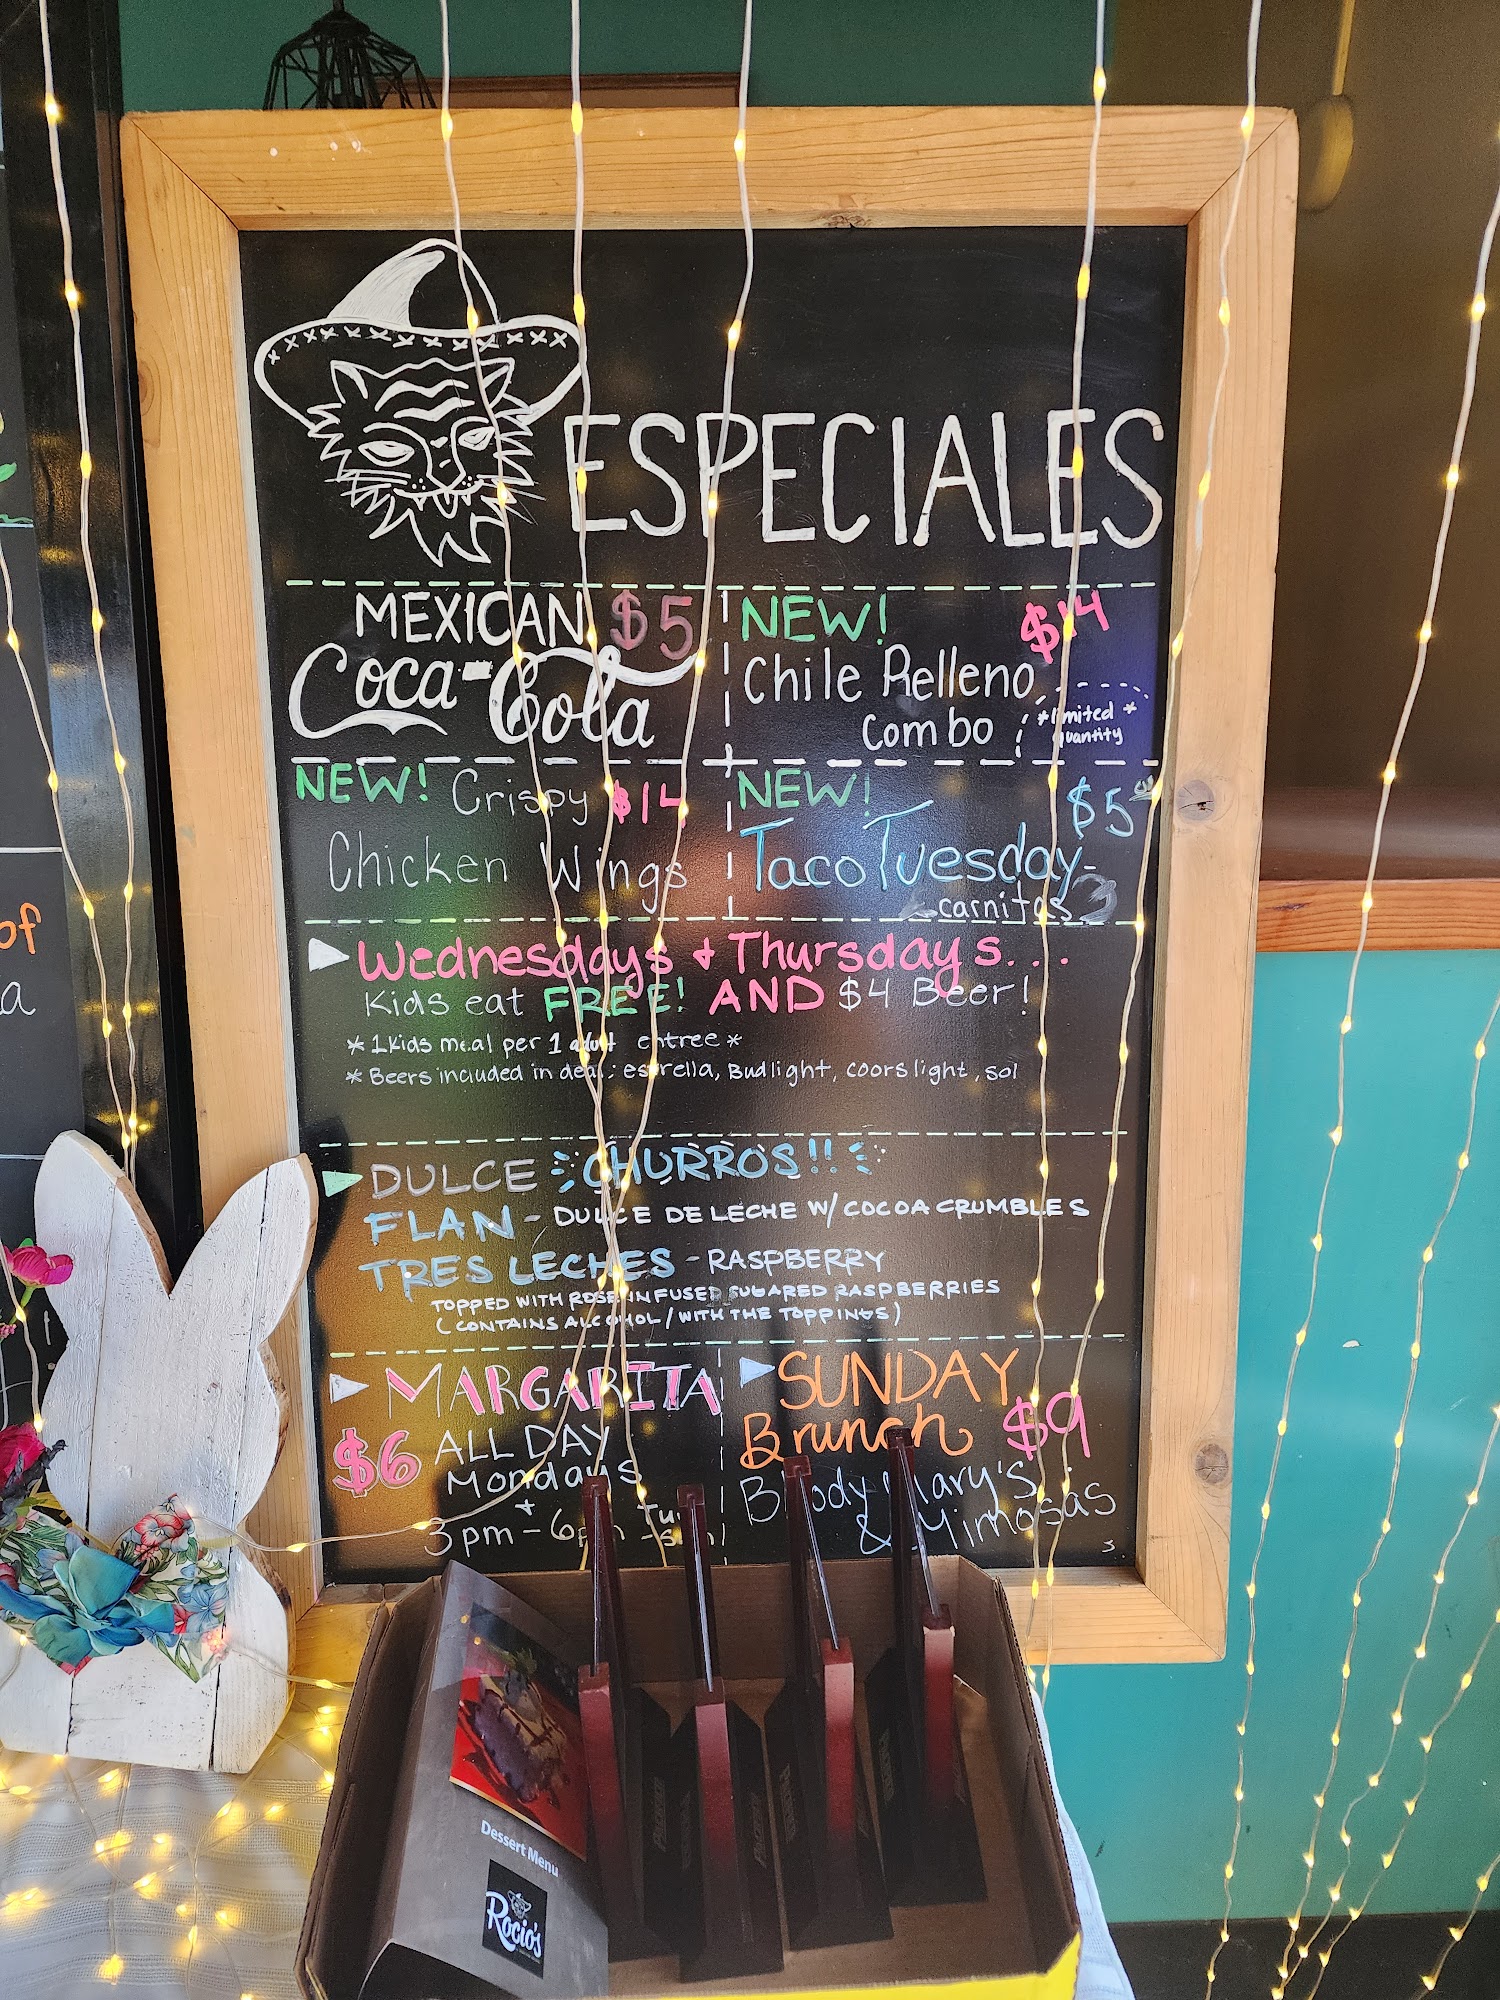 ESPECIALES
MEXICAN $5
Coca-Cola
NEW! $14
Chile Relleno
Combo
*limited *
quantity
NEW! Crispy $14
Chicken Wings
NEW! $5
Taco Tuesday-
carnitas
Wednesdays & Thursdays...
Kids eat FREE! AND $4 Beer!
* 1 Kids meal per 1 adult entree *
* Beers included in deal: estrella, Bud light, coors light, sol
DULCE CHURROS!!
FLAN - DULCE DE LECHE W/ COCOA CRUMBLES
TRES LECHES - RASPBERRY
TOPPED WITH ROSE INFUSED SUGARED RASPBERRIES
(CONTAINS ALCOHOL / WITH THE TOPPINGS)
MARGARITA
$6 ALL DAY
Mondays
+
3pm - 6pm Tu - sun
SUNDAY
Brunch $9
Bloody Mary's
& Mimosas
of
a
Dessert Menu
Rocio's